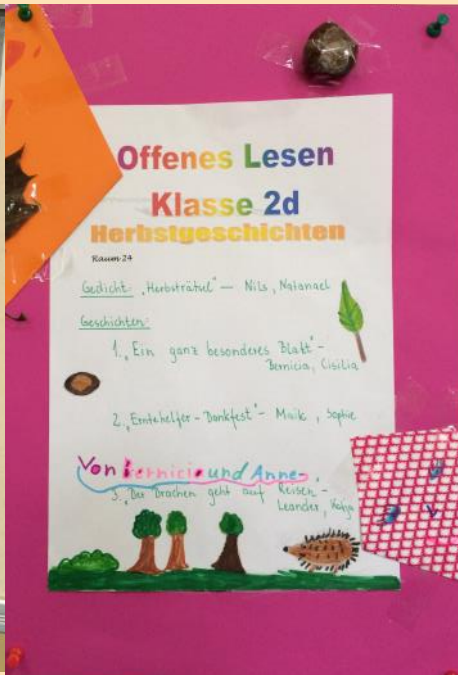 Offenes Lesen
Klasse 2d
Herbstgeschichten
Raum 24
Gedicht: „Herbsträtsel" – Nils, Natanael
Geschichten:
1. „Ein ganz besonderes Blatt" –
Bernicia, Cisilia
2. „Erntehelfer-Dankfest" – Maik, Sophie
Von Bernicia und Anne
3. „Der Drachen geht auf Reisen –
Leander, Katja